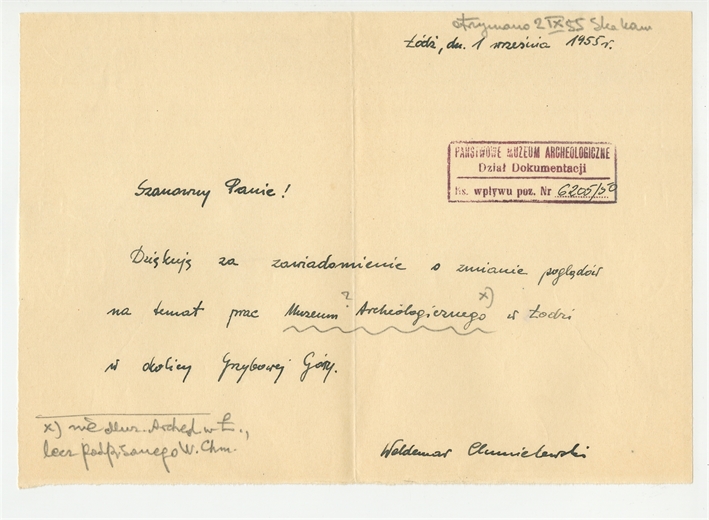 otrzymano 2 IX 55
Łódź, dn. 1 września 1955 r.
PAŃSTWOWE MUZEUM ARCHEOLOGICZNE
Dział Dokumentacji
Ks. wpływu poz. Nr 6205/50
Szanowny Panie!
Dziękuję za zawiadomienie o zmianie poglądów
na temat prac Muzeum ? Archeologicznego x) w Łodzi
w okolicy Grzybowej Góry.
x) nie Muz. Archeol. w Ł.,
lecz podpisanego W. Chm.
Waldemar Chmielewski